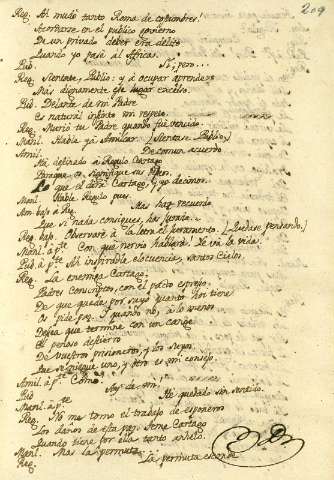 209
Reg. Ah mudó tanto Roma de costumbres!
Acordarse en el publico govierno
De un privado deber era delito
Quando yo pasé al Africa.
Pub. Si, pero...
Reg. Sientate, Publio: y á ocupar aprende
Mas dignamente ese lugar excelso.
Pub. Delante de mi Padre
Es natural instinto mi respeto.
Reg. Murió tu Padre quando fué vencido.
Manl. Habla ya Amilcar. (Sientase Publio)
Amil. De comun acuerdo
Ha destinado á Regulo Cartago
Paraque os signifique su
que el dirá Cartago, y yo decimos.
Manl. Habla Regulo pues.
Am. bajo á Reg. Mas haz recuerdo
Que si nada consigues, has jurado..
Reg. bajo. Observaré á la letra el juramento. (Quedase pensando.)
Manl. á p.te Con qué nervio hablará! Le vá la vida!
Pub. á p.te Ah inspiradle elocuencia, santos Cielos.
Reg. La enemiga Cartago
Padres Conscriptos, con el pacto expreso
De que quede por suyo quanto hoi tiene
Os pide paz. Y quando nó, á lo menos
Desea que termine con un cange
El penoso destierro
De vuestros prisioneros, y los suyos.
Que se niegue uno, y otro es mi consejo.
Amil. á p.te Como!
Pub. Ay de mi!
Manl. á p.te He quedado sin sentido.
Reg. Yo me tomo el trabajo de esponeros
Los daños de esta paz. Teme Cartago
Quando tiene por ella tanto anhelo.
Manl. Mas la permuta..
Reg. La permuta esconde